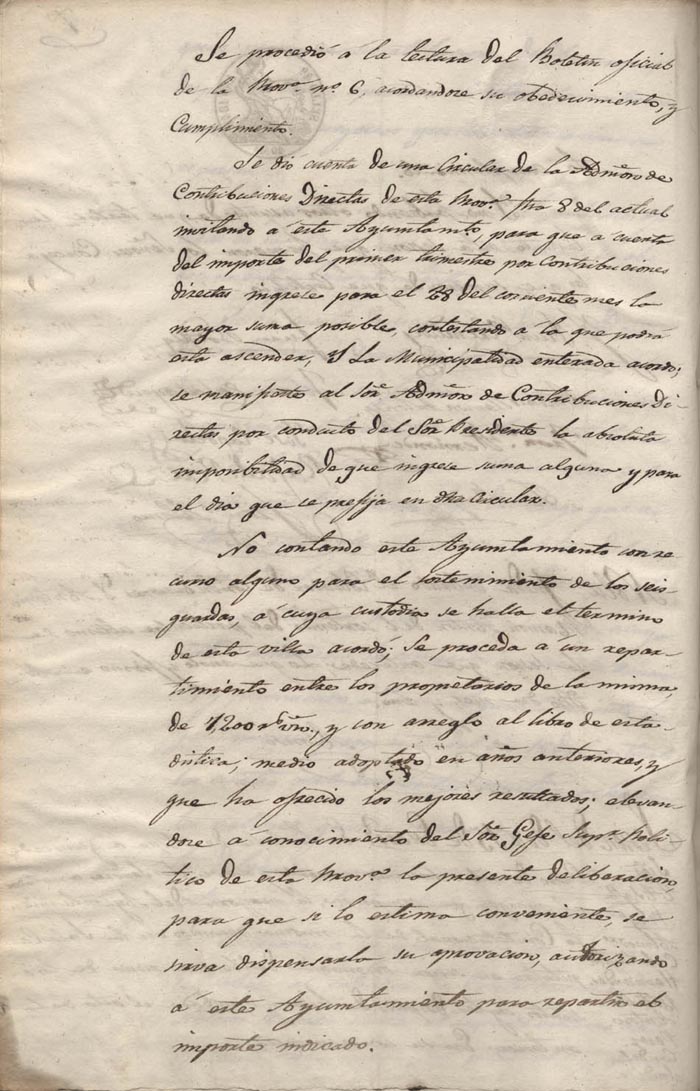 Se procedió á la lectura del Boletin oficial
de la Provª. nº 6, acordandose su obedecimiento, y
Cumplimiento.
Se dio cuenta de una Circular de la Admon. de
Contribuciones Directas de esta Provª. fha 8 del actual
invitando á este Ayuntamto, para que a cuenta
del importe del primer trimestre por Contribuciones
directas ingrese para el 28 del corriente mes la
mayor suma posible, contestando a la que podrá
esta ascender, Y La Municipalidad enterada acordo;
se manifieste al Sor. Admor. de Contribuciones Di-
rectas por conducto del Sor. Presidente la absoluta
imposibilidad de que ingrese suma alguna y para
el dia que se prefija en dha Circular.
No contando este Ayuntamiento con re
curso alguno para el sostenimiento de los seis
guardas, á cuya custodia se halla el termino
de esta villa acordó; Se proceda á un repar-
timiento entre los propietarios de la misma,
de 7,200 rs. vn., y con arreglo al libro de esta-
distica; medio adoptado en años anteriores, y
que ha ofrecido los mejores resultados; elevan-
dose á conocimiento del Sor. Gefe Supr. Poli-
tico de esta Provª. la presente deliberacion,
para que si lo estima conveniente, se
sirva dispensarla su aprovacion, autorizando
á este Ayuntamiento para repartir el
importe indicado.